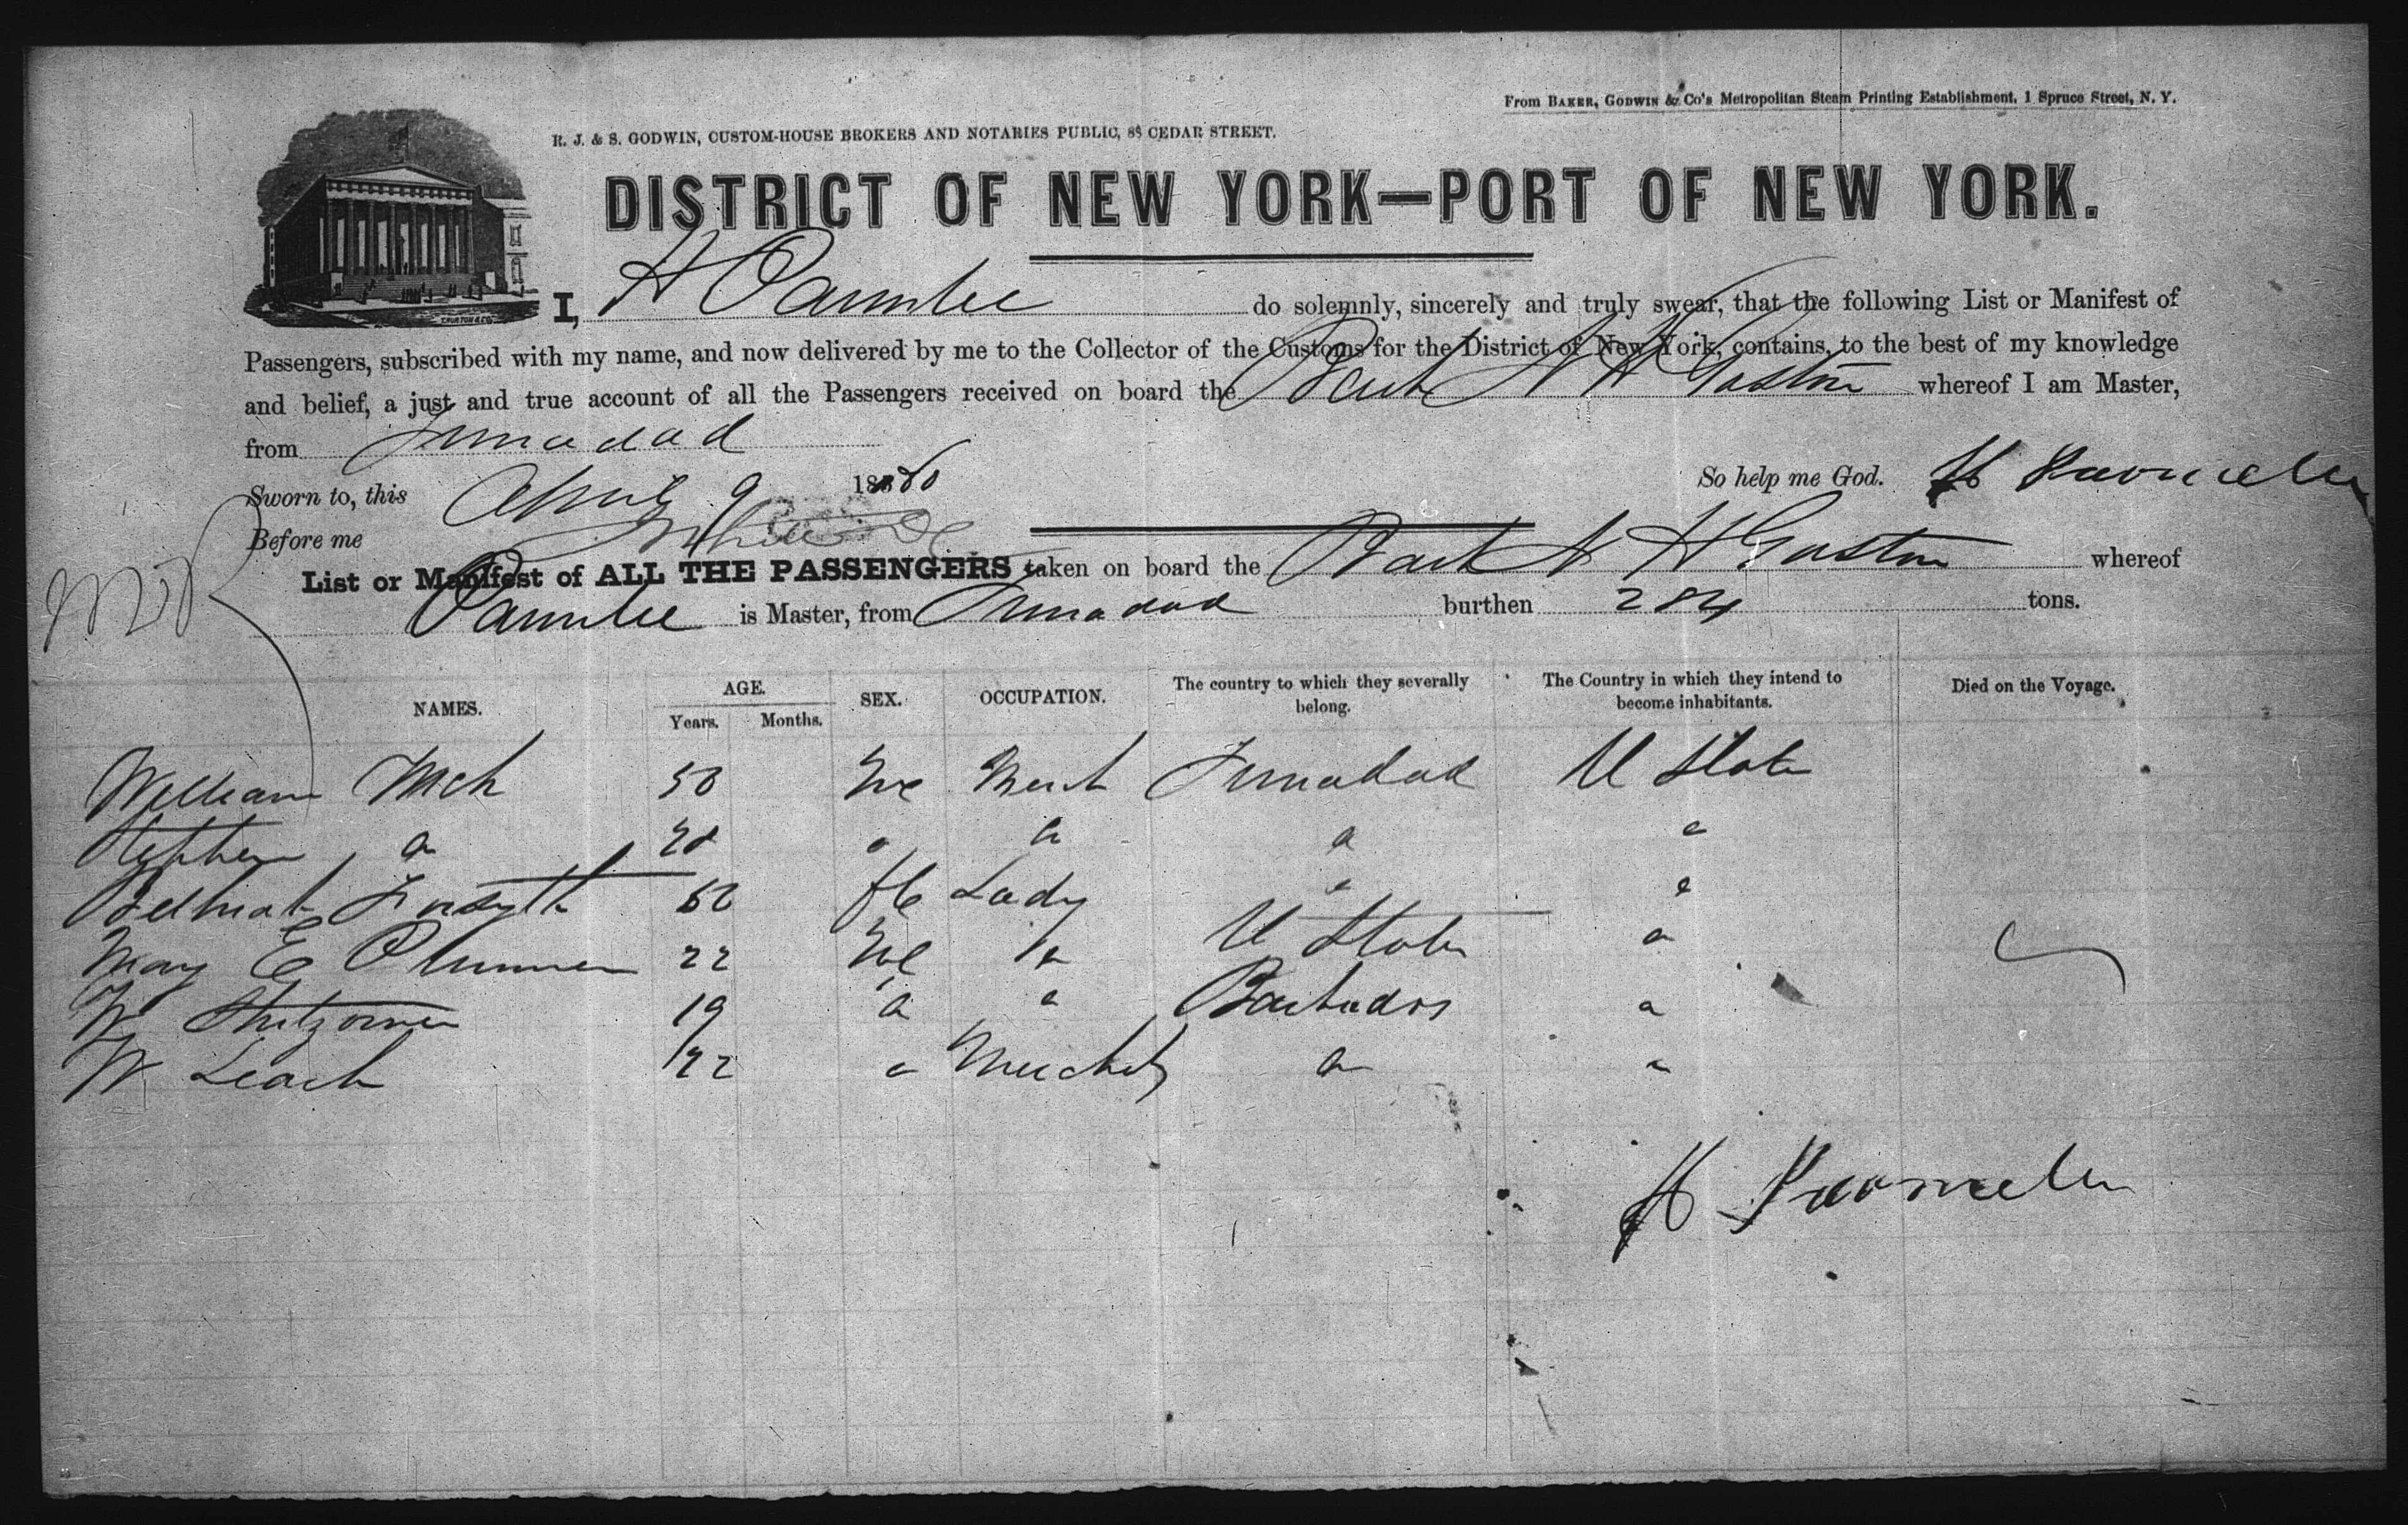 From BAKER, GODWIN & Co's Metropolitan Steam Printing Establishment, 1 Spruce Street, N. Y.
R. J. & S. GODWIN, CUSTOM-HOUSE BROKERS AND NOTARIES PUBLIC, 88 CEDAR STREET.
DISTRICT OF NEW YORK—PORT OF NEW YORK.
I, H Parmlee do solemnly, sincerely and truly swear, that the following List or Manifest of
Passengers, subscribed with my name, and now delivered by me to the Collector of the Customs for the District of New York, contains, to the best of my knowledge
and belief, a just and true account of all the Passengers received on board the Bark N H Gaston whereof I am Master,
from Trinadad
Sworn to, this April 9 1860 So help me God. H Parmelee
Before me
List or Manifest of ALL THE PASSENGERS taken on board the Bark N H Gaston whereof
Parmlee is Master, from Trinadad burthen 284 tons.
NAMES. AGE. Years. Months. SEX. OCCUPATION. The country to which they severally belong. The Country in which they intend to become inhabitants. Died on the Voyage.
William 50 Me Mercht Trinadad U States
Stephen " 20 " " " "
Forsyth Fe Lady " "
May E Plummer 22 Me " U States "
W 19 " " Barbados "
W Leach 22 " " "
H Parmelee